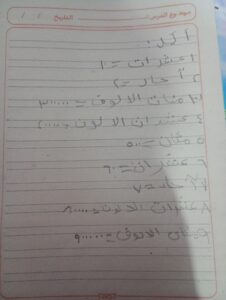 موضوع الدرس: التاريخ
أكمل:
١ عشرات = ١
٢ آحاد = ٢
٣ مئات الالوف = ٣٠٠٠٠٠
٤ عشرات الالوف = ٤٠٠٠٠
٥ مئات = ٥٠٠
٦ عشرات = ٦٠
٧ آحاد = ٧
٨ عشرات الالوف = ٨٠٠٠٠
٩ مئات الالوف = ٩٠٠٠٠٠